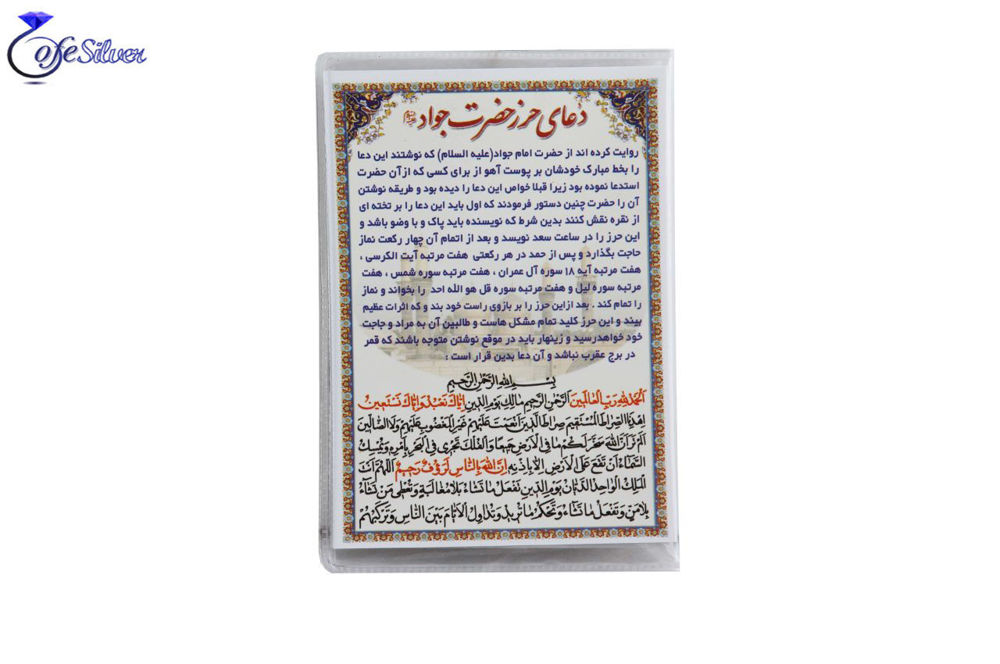 CofeSilver
دعای حرز حضرت جواد
روایت کرده اند از حضرت امام جواد(علیه السلام) که نوشتند این دعا
را بخط مبارک خودشان بر پوست آهو از برای کسی که از آن حضرت
استدعا نموده بود زیرا قبلا خواص این دعا را دیده بود و طریقه نوشتن
آن را حضرت چنین دستور فرمودند که اول باید این دعا را بر تخته ای
از نقره نقش کنند بدین شرط که نویسنده باید پاک و با وضو باشد و
این حرز را در ساعت سعد نویسد و بعد از اتمام آن چهار رکعت نماز
حاجت بگذارد و پس از حمد در هر رکعتی هفت مرتبه آیت الکرسی ،
هفت مرتبه آیه ۱۸ سوره آل عمران ، هفت مرتبه سوره شمس ، هفت
مرتبه سوره لیل و هفت مرتبه سوره قل هو الله احد را بخواند و نماز
را تمام کند . بعد ازاین حرز را بر بازوی راست خود بند و که اثرات عظیم
بیند و این حرز کلید تمام مشکل هاست و طالبین آن به مراد و حاجت
خود خواهدرسید و زینهار باید در موقع نوشتن متوجه باشند که قمر
در برج عقرب نباشد و آن دعا بدین قرار است :
بسم الله الرحمن الرحیم
اَلْحَمْدُ لِلّهِ رَبِّ الْعالَمینَ اَلرَّحْمنِ الرَّحیمِ مالِكِ یَوْمِ الدّینِ اِیّاكَ نَعْبُدُ وَ اِیّاكَ نَسْتَعینُ
اِهْدِنَا الصِّراطَ الْمُسْتَقیمَ صِراطَ الَّذینَ اَنْعَمْتَ عَلَیْهِمْ غَیْرِ الْمَغْضُوبِ عَلَیْهِمْ وَلاَ الضّالّینَ
اَلَمْ تَرَ اَنَّ اللهَ سَخَّرَ لَكُمْ ما فِی الْاَرْضِ جَمیعًا وَالْفُلْكَ تَجْری فِی الْبَحْرِ بِاَمْرِهِ وَ یُمْسِكُ
السَّماءَ اَنْ تَقَعَ عَلَی الْاَرْضِ اِلاّ بِاِذْنِهِ اِنَّ اللهَ بِالنّاسِ لَرَؤُفٌ رَحیمٌ اَللّهُمَّ اَنْتَ
الْمَلِكُ الْواحِدُ الدَّیّانُ یَوْمِ الدّینِ تَفْعَلُ ما تَشاءُ بِلا مُغالَبَةٍ وَ تُعْطی مَنْ تَشاءُ
بِلا مَنٍّ وَ تَفْعَلُ ما تَشاءُ وَ تَحْكُمُ ما تُریدُ وَ تُداوِلُ الْاَیّامَ بَیْنَ النّاسِ وَ تُرَكِّبُهُمْ